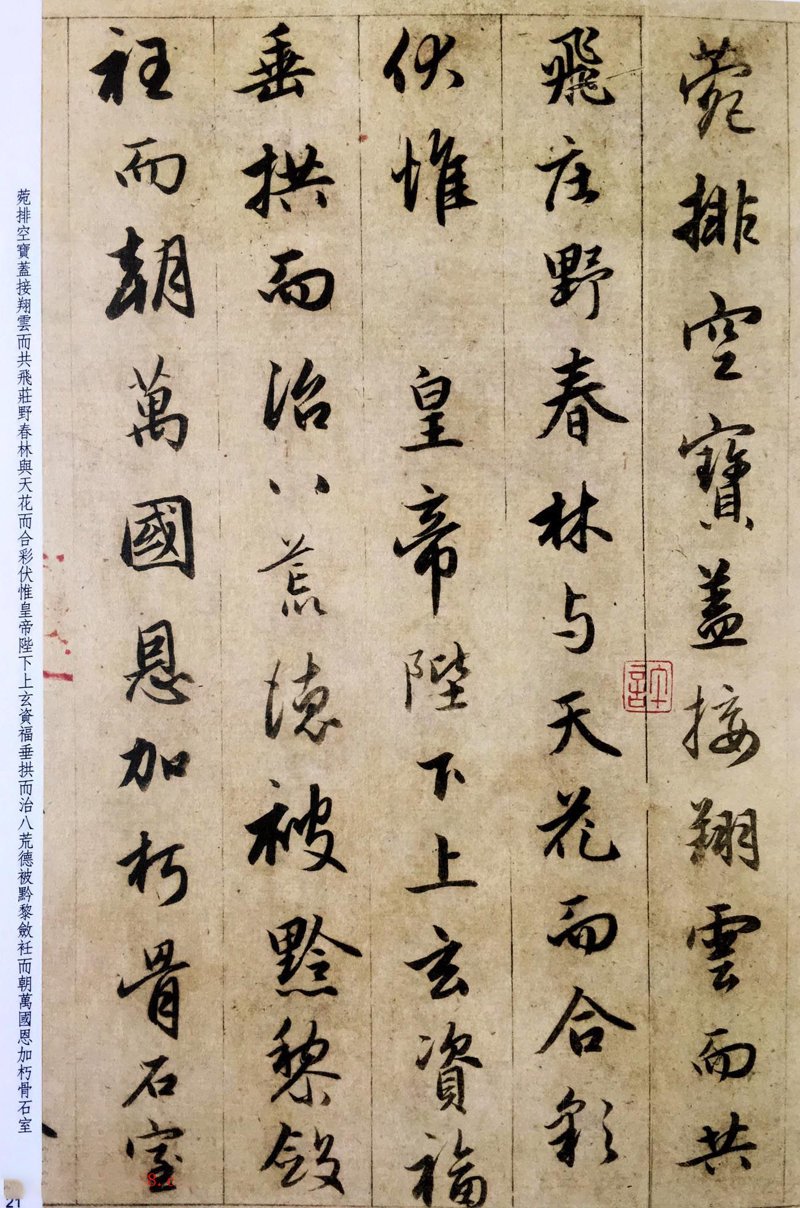 菀排空寶蓋接翔雲而共
飛庄野春林与天花而合彩
伏惟 皇帝陛下上玄資福
垂拱而治八荒德被黔黎斂
衽而朝萬國恩加朽骨石室
菀排空寶蓋接翔雲而共飛莊野春林與天花而合彩伏惟皇帝陛下上玄資福垂拱而治八荒德被黔黎斂衽而朝萬國恩加朽骨石室
21